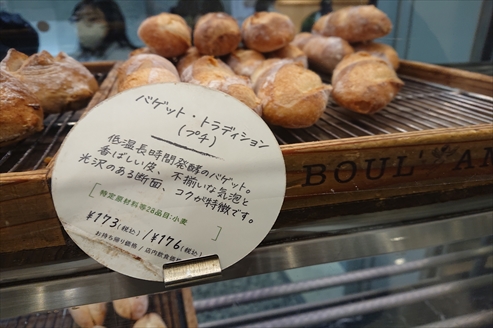 バゲット・トラディション
(プチ)
低温長時間発酵のバゲット。
香ばしい皮、不揃いな気泡と
光沢のある断面、コクが特徴です。
[特定原材料等28品目:小麦]
¥173(税込) / ¥176(税込)
お持ち帰り価格 / 店内飲食価格
BOUL'AN